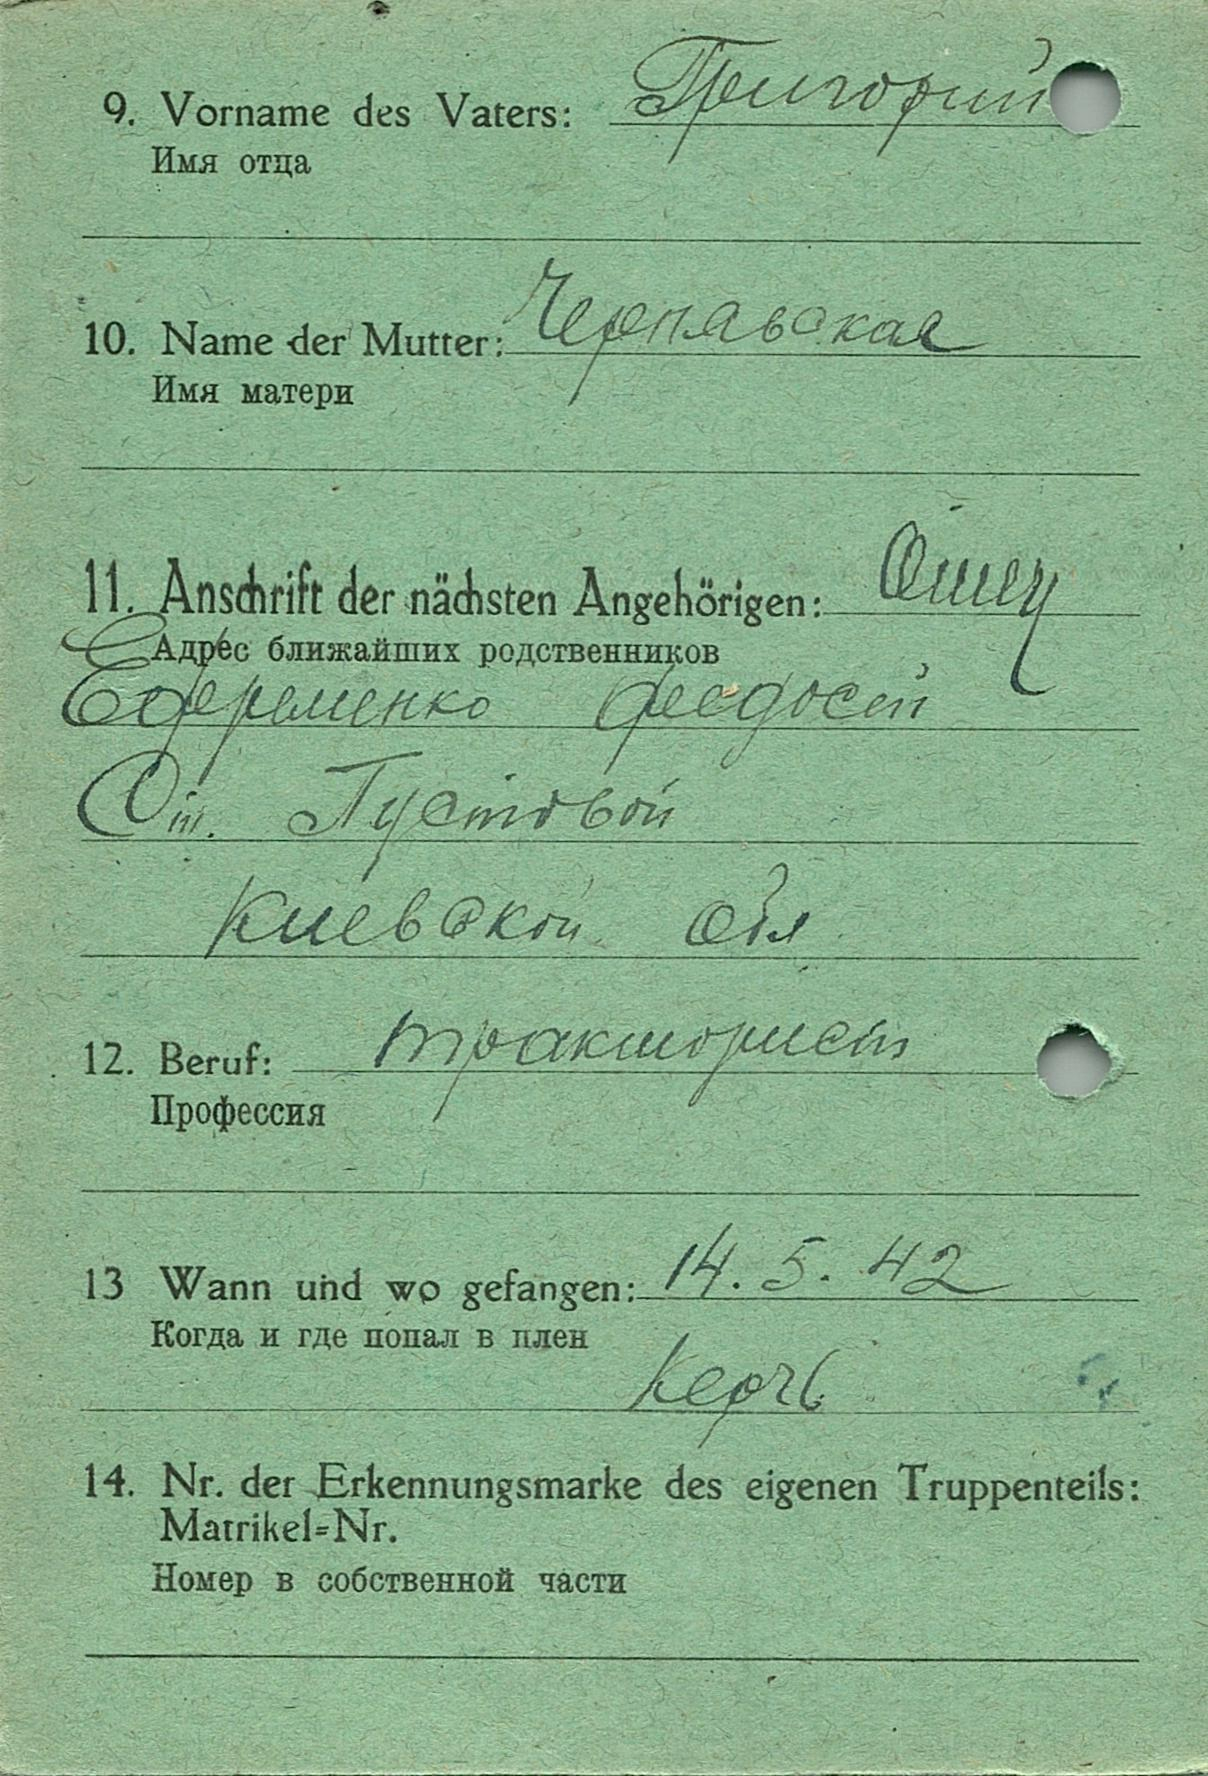 9. Vorname des Vaters: Григорий
Имя отца
10. Name der Mutter: Чернявская
Имя матери
11. Anschrift der nächsten Angehörigen: Отец
Адрес ближайших родственников
Ефременко Федосей
Ст. Пустовой
Киевской обл
12. Beruf: тракторист
Профессия
13 Wann und wo gefangen: 14. 5. 42
Когда и где попал в плен
Керчь
14. Nr. der Erkennungsmarke des eigenen Truppenteils:
Matrikel=Nr.
Номер в собственной части